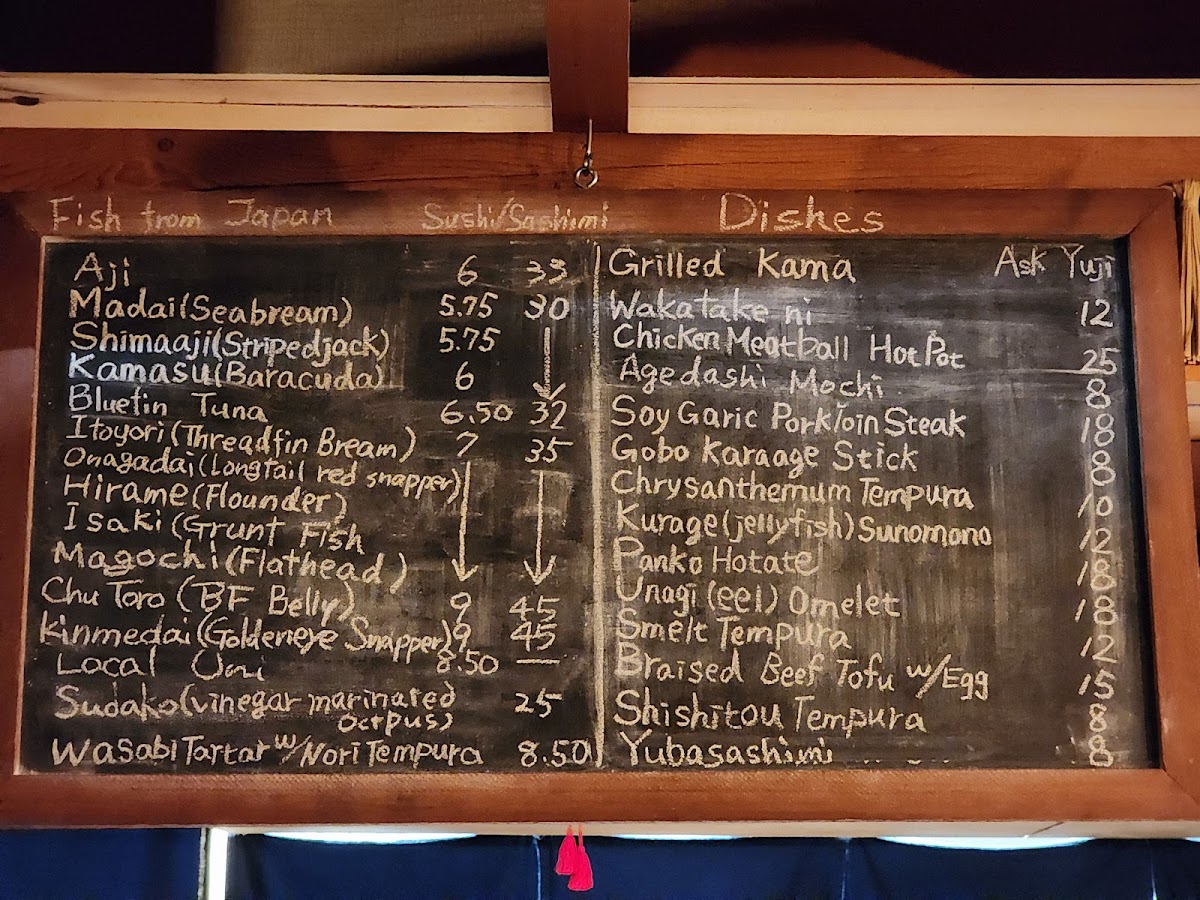 Fish from Japan Sushi/Sashimi
Aji 6 33
Madai(Seabream) 5.75 30
Shimaaji(Stripedjack) 5.75
Kamasu(Baracuda) 6
Bluefin Tuna 6.50 32
Itoyori(Threadfin Bream) 7 35
Onagadai(longtail red snapper)
Hirame(Flounder)
Isaki(Grunt Fish
Magochi(Flathead)
Chu Toro (BF Belly) 9 45
Kinmedai(Goldeneye Snapper) 9 45
Local Uni 8.50 —
Sudako(vinegar marinated 25
octpus)
Wasabi Tartar w/Nori Tempura 8.50
Dishes
Grilled Kama Ask Yuji
Wakatake ni 12
Chicken Meatball Hot Pot 25
Agedashi Mochi 8
Soy Garic Porkloin Steak 18
Gobo Karaage Stick 8
Chrysanthemum Tempura 10
Kurage(jellyfish)Sunomono 12
Panko Hotate 18
Unagi (eel) Omelet 18
Smelt Tempura 12
Braised Beef Tofu w/Egg 15
Shishitou Tempura 8
Yubasashimi 8